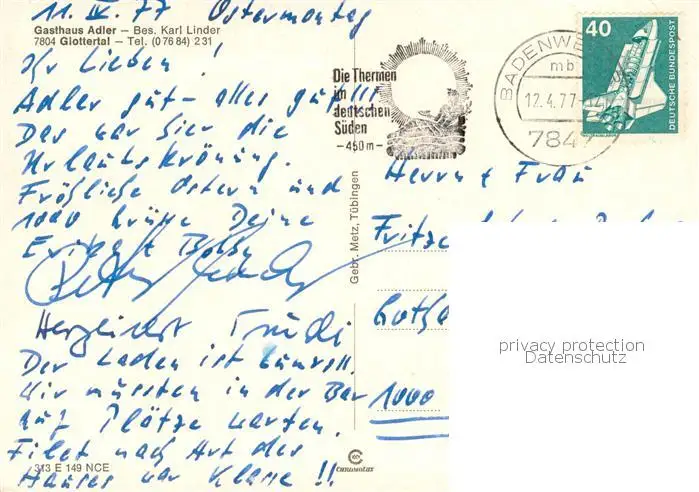 11. IV. 77 Ostermontag
Gasthaus Adler – Bes. Karl Linder
7804 Glottertal – Tel. (0 76 84) 231
Ihr Lieben!
Adler gut – alles gut!!!
Das war hier die
Urlaubskrönung.
Fröhliche Ostern und
1000 Grüße Deine
Herzlichst Trudi
Der Laden ist
Wir mussten in der Bar
auf Plätze warten.
Filet nach Art des
Hauses war Klasse !!
313 E 149 NCE
Gebr. Metz, Tübingen
Die Thermen
im
deutschen
Süden
– 450 m –
12.4.77
mb
784
40
DEUTSCHE BUNDESPOST
Herrn & Frau
1000
privacy protection
Datenschutz